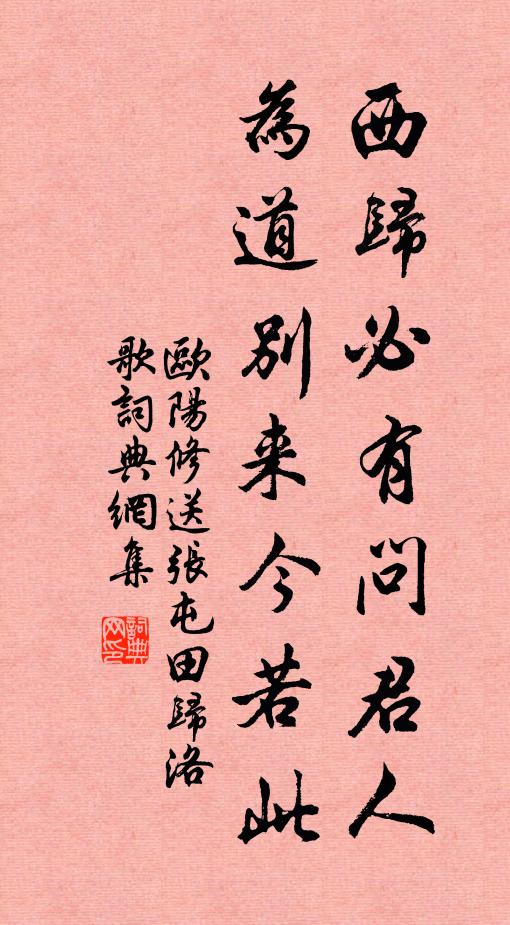 西歸必有問君人
為道別来今若此
歐陽修送張屯田歸洛
歌詞典網集
詞典
网印